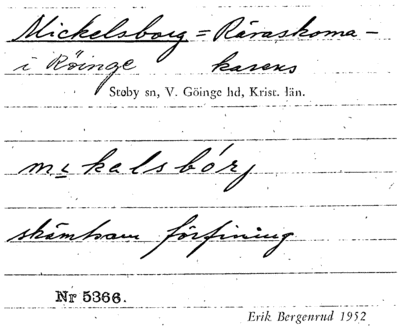 Mickelsborg = Räraskoma-
i Röinge kasens
Stoby sn, V. Göinge hd, Krist. län.
mɩkalsbórj
skämtnamn förfining
Nr 5366.
Erik Bergenrud 1952